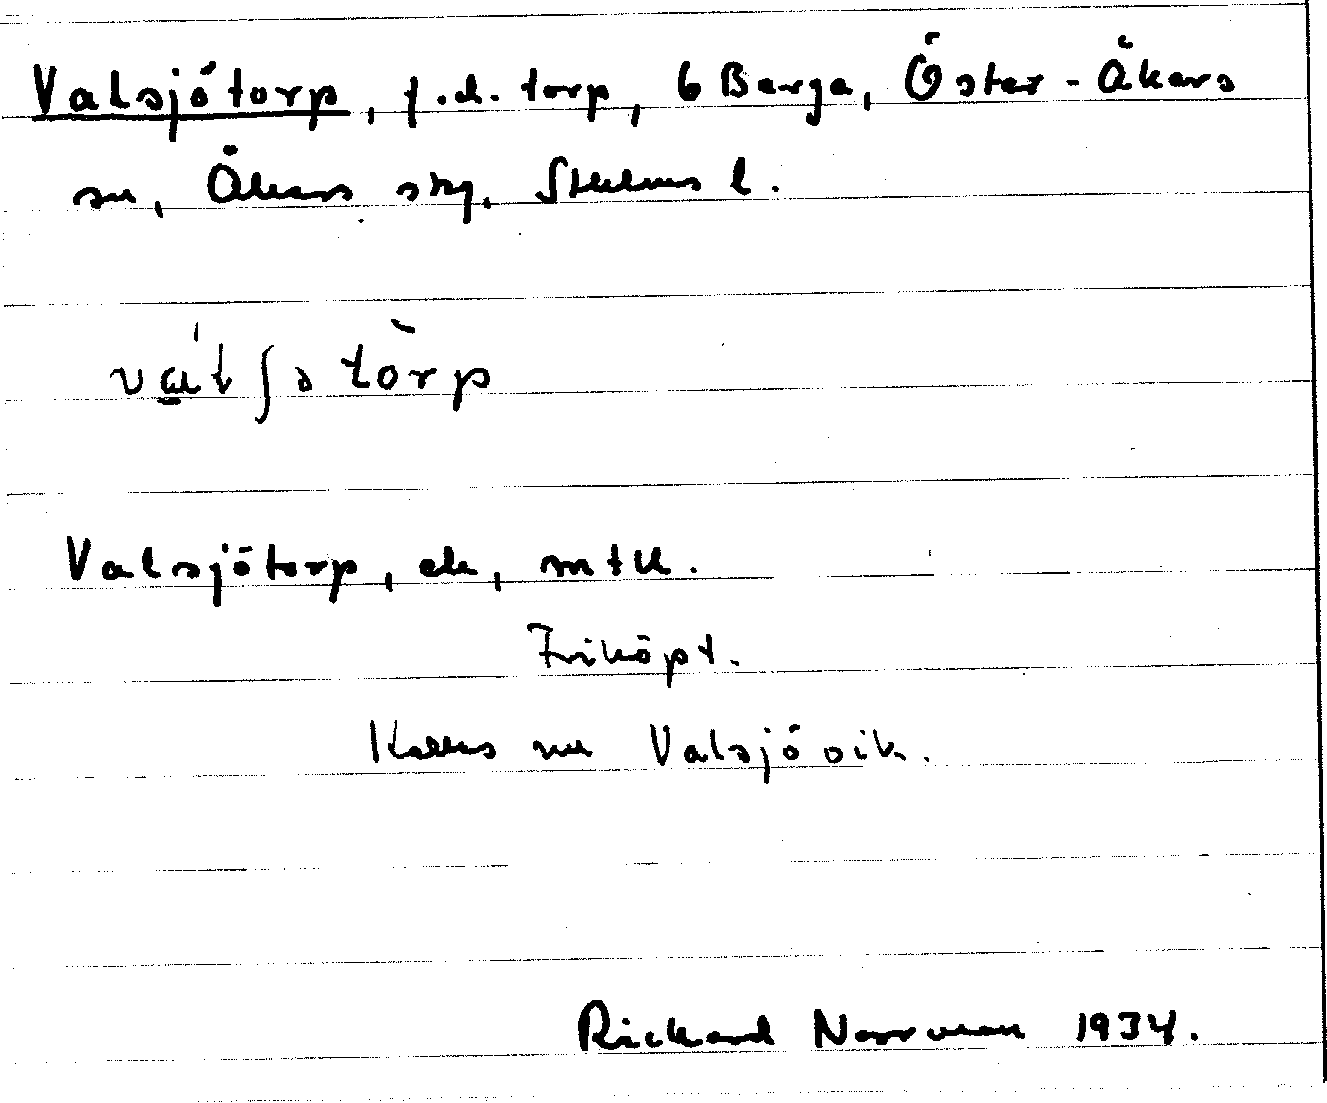 Valsjötorp, f.d. torp, 6 Berga, Öster-Åkers
sn, Åkers skg, Sthlms l.
Valsjötorp, ek,
Friköpt.
Kallas nu Valsjövik.
Rickard Norrman 1934.